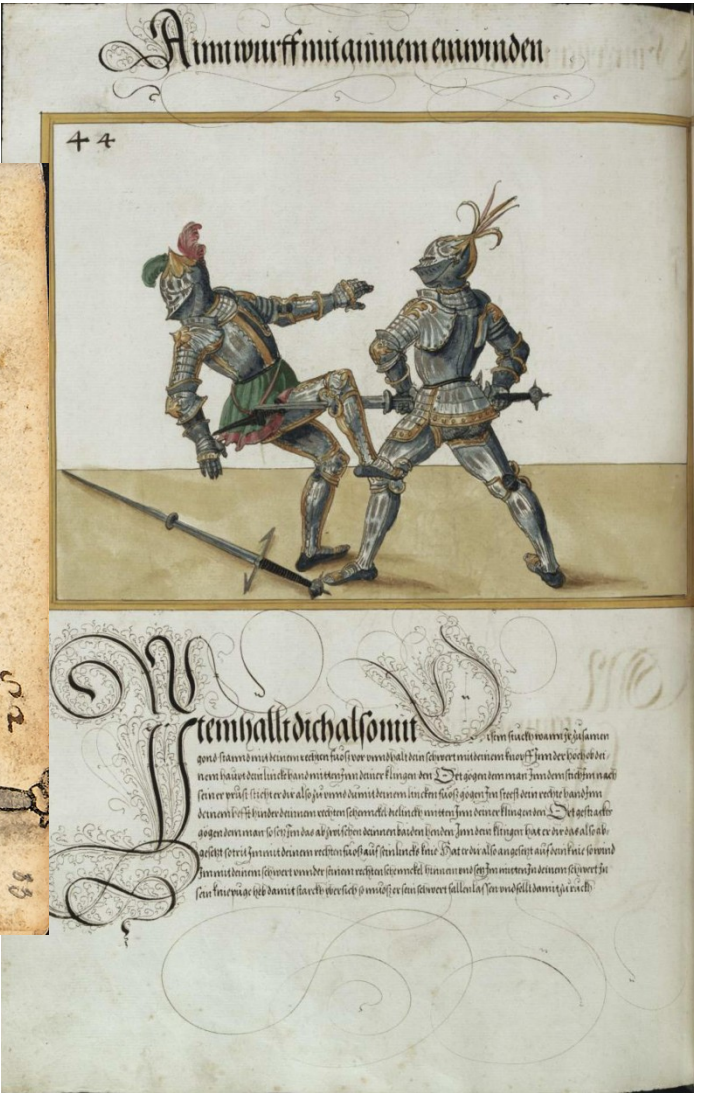 Ainn wurff mit ainnem einwinden
44
Item hallt dich also mit
disem stuckh wann Ir zusamen
gond stannd mit deinem rechten fuos vor vnnd halt dein schwert mit deinem knopff Inn der hoch ob dei-
nem haupt dein linckhand mitten Inn deiner klingen den Ort gögen dem man Inn dem stich Im nach
seiner prust sticht er dir also zu vnnd
mit deinem lincken fuos gögen Im
dein rechte hand Inn
deinem hefft hinder deinnem rechten schennckel die linckh mitten Inn deiner klingen den Ort gestrackt
gögen dem man so setz Im das ab zwischen deinnen baiden henden Inn dein klingen hat er dir das also ab-
gesetzt so trit Im mit deinem rechten fuos auf sein lincks knie Hat er dir also angesetzt auf dein knie so wind
Im mit deinem schwert vnnder seinem rechten schennckel hinnein vnd setz Im mitten In deinem schwert In
sein knie
heb damit starckh vber sich so muos er sein schwert fallen lassen vnd fellt damit zu ruckh